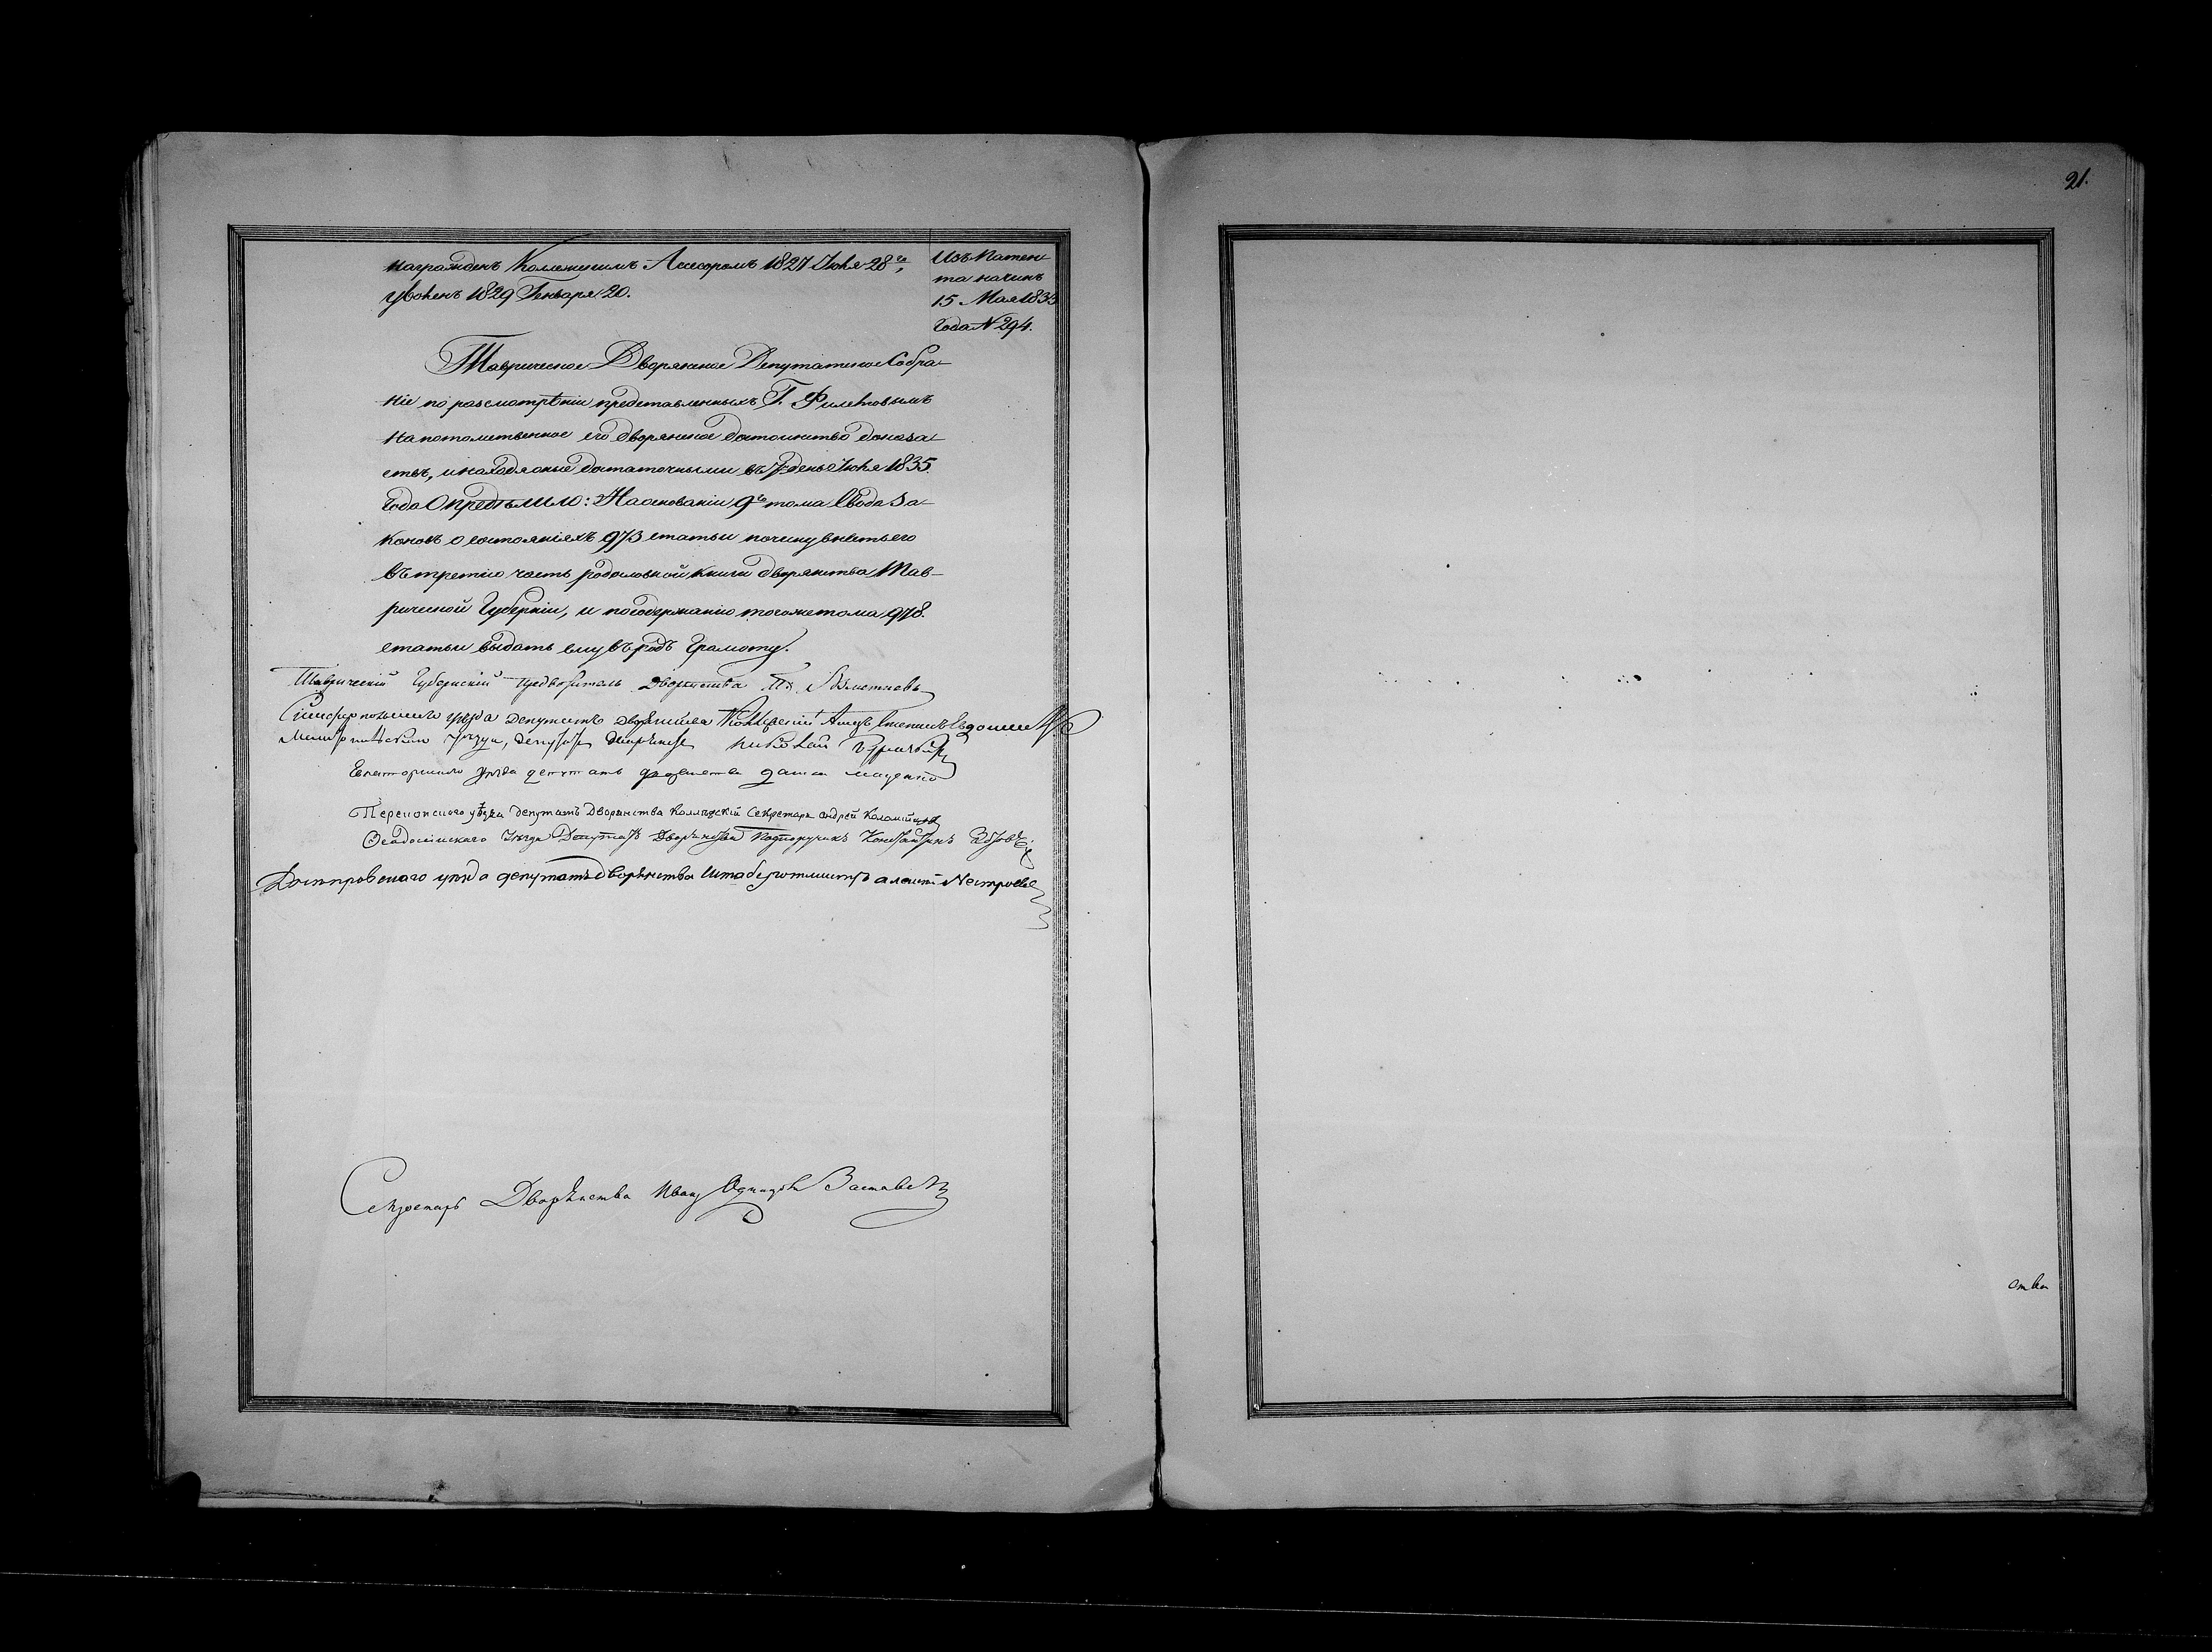 21.
награжденъ Коллежскимъ Ассесоромъ 1827 Июня 28го,
уволенъ 1829 Генваря 20.
Изъ Патен-
та на чинъ
15 Мая 1833
Года N 294.
Таврическое Дворянское Депутатское Собра-
ніе по разсмотрѣніи представленныхъ Г. Филатовымъ
на потомственное его дворянское достоинство доказа-
етьъ, и находя оные достаточными въ 7 день Июня 1835.
Года Опредѣлило: На основаніи 9го тома Свода За-
коновъ о состояніяхъ 973 статьи по чину внесть его
въ третію часть родословной книги дворянства Тав-
рической Губерніи, и по содержанію того же тома 978.
статьи выдать ему въ родъ Грамоту.
Таврическій Губернскій Предводитель Дворянства
Симферопольскаго уѣзда Депутатъ дворянства
Мелитопольскаго уѣзда, депутатъ дворянства Николай
Евпаторскаго уѣзда депутатъ дворянства
Перекопскаго уѣзда депутатъ Дворянства Коллежскій Секретарь андрей Коломійцовъ
Ѳеодосійскаго Уѣзда Депутатъ Дворянства Подпоручикъ Константинъ
Днепровскаго уѣзда депутатъ дворянства Штабсъ ротмистръ
Секретарь Дворянства Иванъ